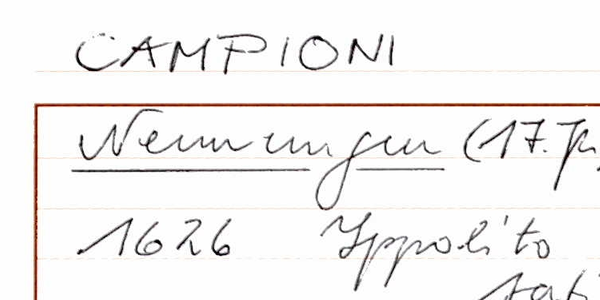 CAMPIONI
Nennungen (17. Jh.
1626 Ippolito